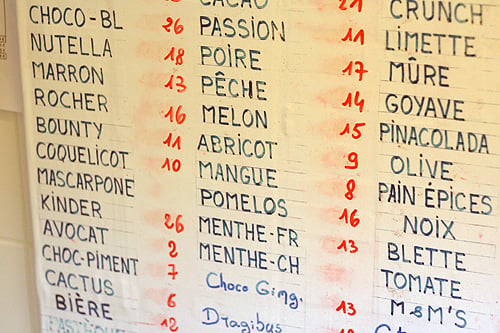 CHOCO-BL
NUTELLA
MARRON
ROCHER
BOUNTY
COQUELICOT
MASCARPONE
KINDER
AVOCAT
CHOC-PIMENT
CACTUS
BIÈRE
PASTÈQUE
26
18
13
16
11
10
26
2
7
6
12
CACAO
PASSION
POIRE
PÊCHE
MELON
ABRICOT
MANGUE
POMELOS
MENTHE-FR
MENTHE-CH
Choco Gimg.
Dragibus
21
11
17
14
15
9
8
16
13
13
12
CRUNCH
LIMETTE
MÛRE
GOYAVE
PINACOLADA
OLIVE
PAIN ÉPICES
NOIX
BLETTE
TOMATE
M&M'S